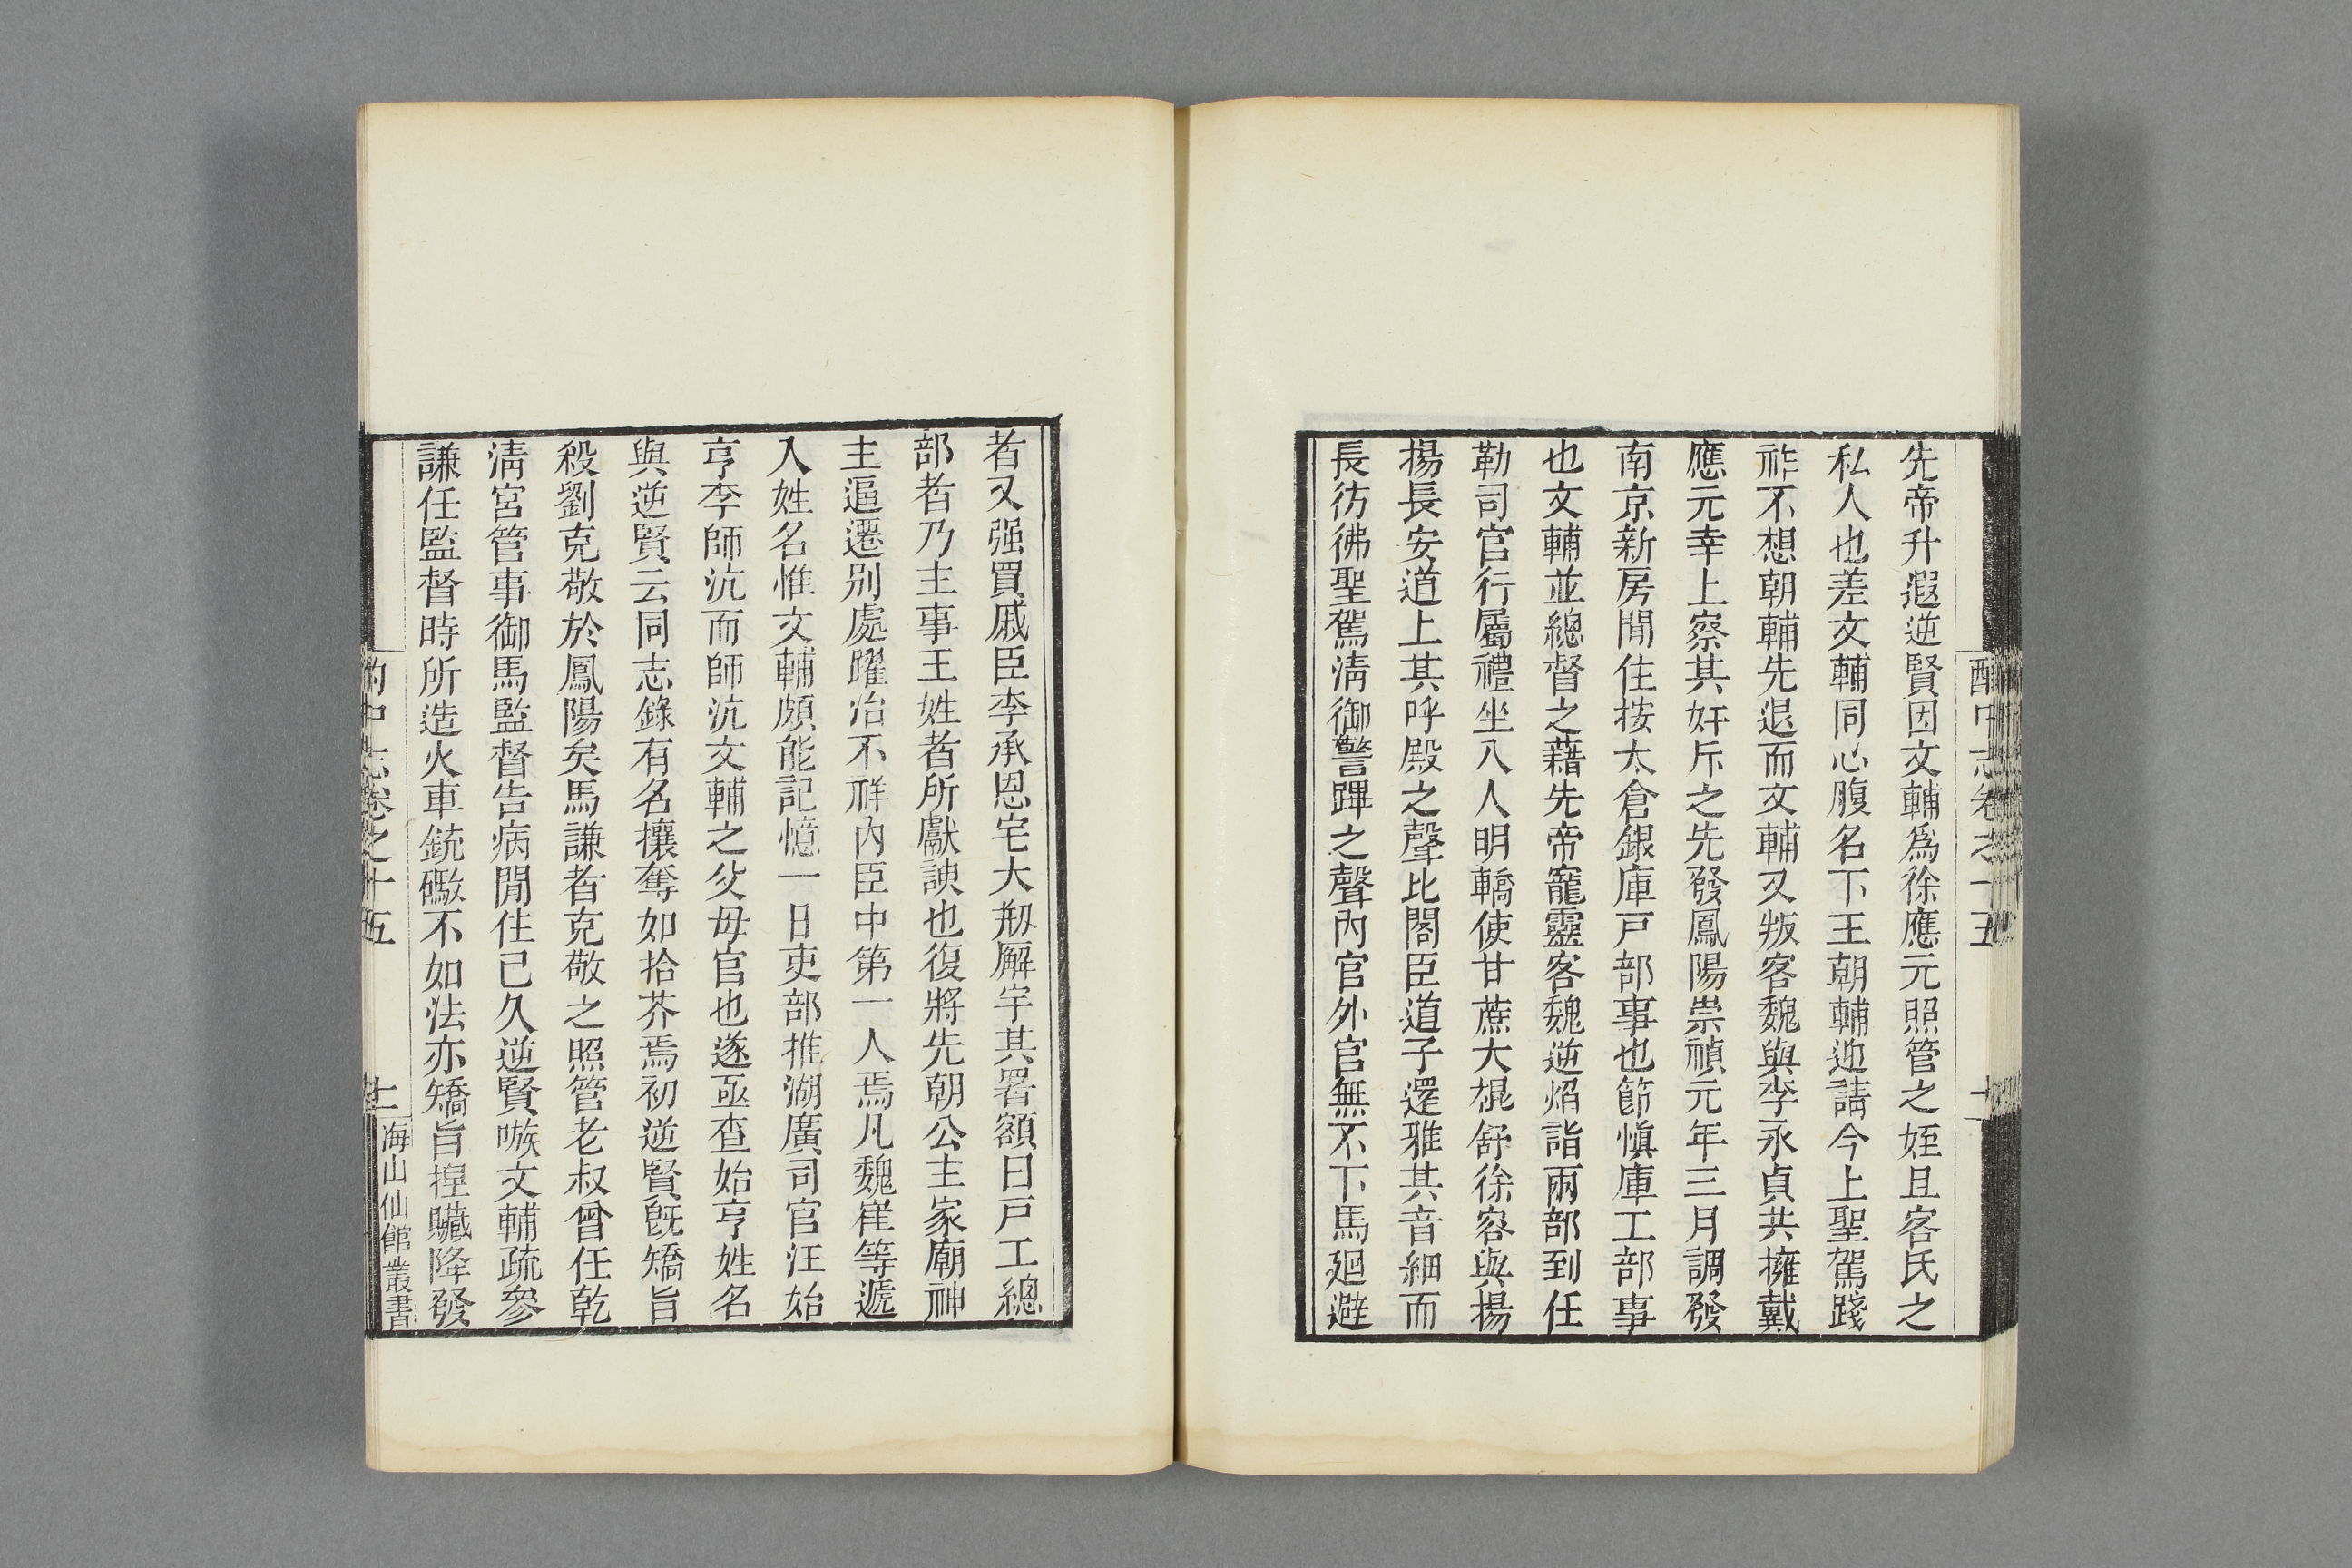 酌中志卷之十五
先帝升遐逆賢因文輔爲徐應元照管之姪且客氏之
私人也差文輔同心腹名下王朝輔迎請今上聖駕踐
祚不想朝輔先退而文輔又叛客魏與李永貞共擁戴
應元幸上察其奸斥之先發鳳陽崇禎元年三月調發
南京新房閒住按太倉銀庫戸部事也節愼庫工部事
也文輔並總督之藉先帝寵靈客魏逆焰詣兩部到任
勒司官行屬禮坐八人明轎使甘蔗大棍舒徐容與揚
揚長安道上其呼殿之聲比閣臣道子還雅其音細而
長彷彿聖駕清御警蹕之聲內官外官無不下馬廻避
者又强買戚臣李承恩宅大剏廨宇其署額曰戸工總
部者乃主事王姓者所獻諛也復將先朝公主家廟神
主逼遷別處躍冶不祥內臣中第一人焉凡魏崔等遞
入姓名惟文輔頗能記憶一日吏部推湖廣司官汪始
亨李師沆而師沆文輔之父母官也遂亟查始亨姓名
與逆賢云同志錄有名攘奪如拾芥焉初逆賢旣矯旨
殺劉克敬於鳳陽矣馬謙者克敬之照管老叔曾任乾
清宮管事御馬監督告病閒住已久逆賢嗾文輔疏參
謙任監督時所造火車銃礮不如法亦矯旨揑贓降發
酌中志卷之十五
十一
海山仙館叢書